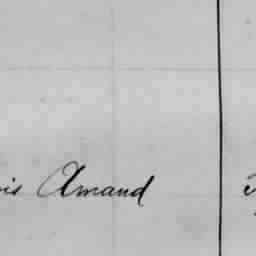 is Amand